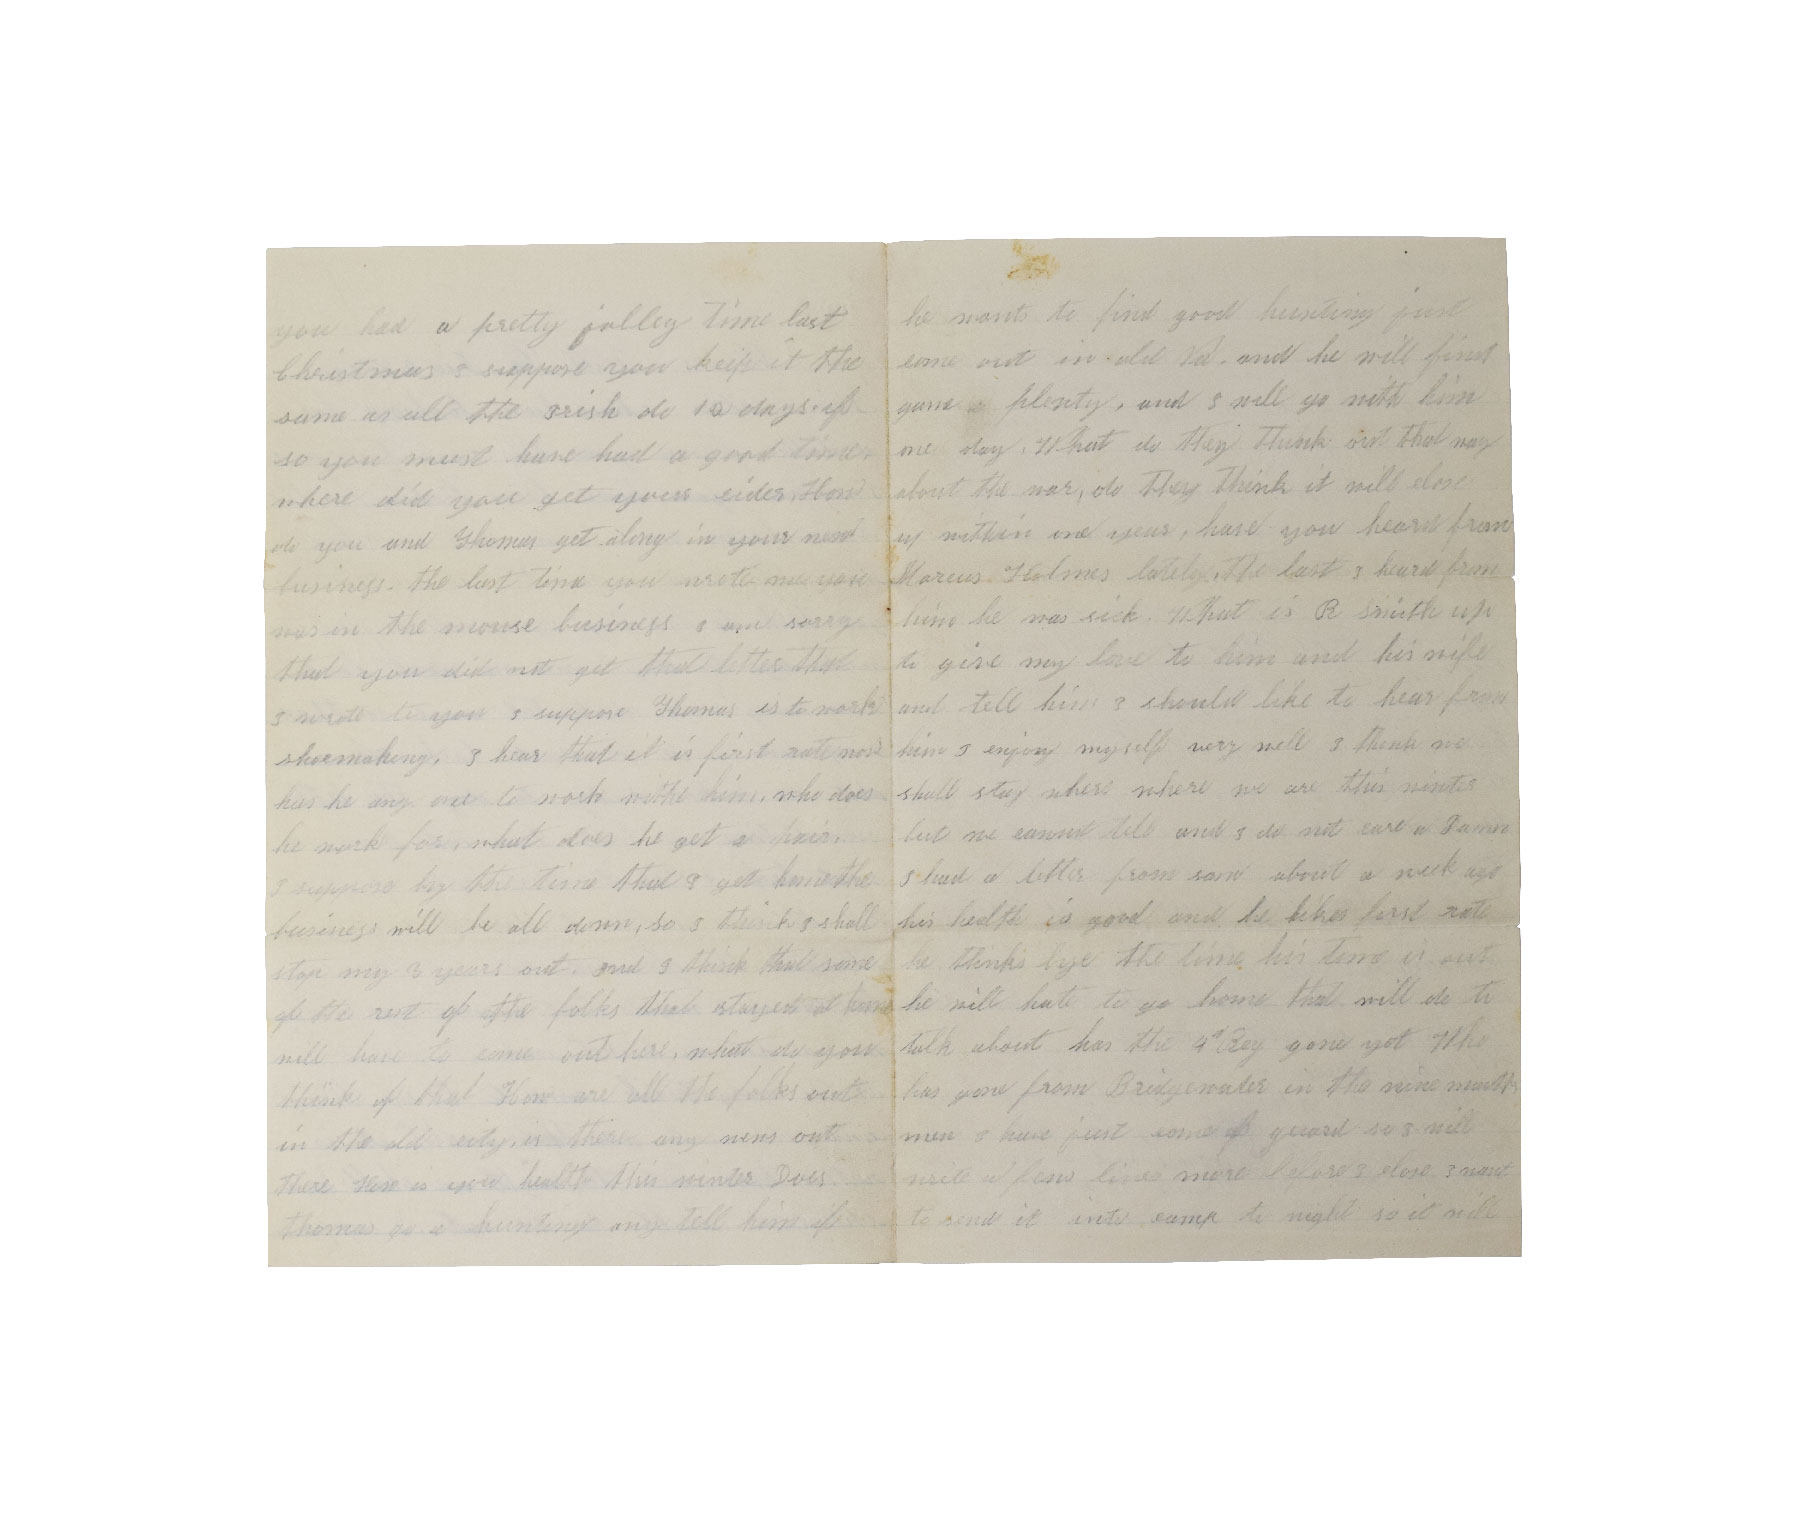 you had a pretty jolley time last
Christmas I suppose you keep it the
same as all the Irish do 12 days. if
so you must have had a good time.
where did you get your cider, How
do you and Thomas get along in your new
business. the last time you wrote me you
was in the mouse business I am sorry
that you did not get that letter that
I wrote to you I suppose Thomas is to work
shoemaking. I hear that it is first rate now
has he any one to work withe him. who does
he work for, what does he get a pair.
I suppose by the time that I get home the
business will be all down, so I think I shall
stop my 3 years out. and I think that some
of the rest of the folks that stayed at home
will have to come out here. what do you
think of that How are all the folks out
in the old city. is there any news out
there How is you health this winter Does
thomas go a hunting any tell him if
he wants to find good hunting just
come out in old Va. and he will find
game plenty, and I will go with him
one day. What do they think out that way
about the war, do they think it will close
up within one year, have you heard from
Marcus Holmes lately. the last I heard from
him he was sick. What is R Smith up
to give my love to him and his wife
and tell him I should like to hear from
him I enjoy myself very well I think we
shall stay where where we are this winter
but we cannot tell and I do not care a Damn
I had a letter from sam about a week ago
his health is good and he likes first rate
he thinks bye the time his time is out
he will hate to go home that will do to
talk about has the 4th Reg gone yet Who
has gone from Bridgewater in the nine months
men I have just come of guard so I will
write a few lines more before I close I want
to send it into camp to night so it will